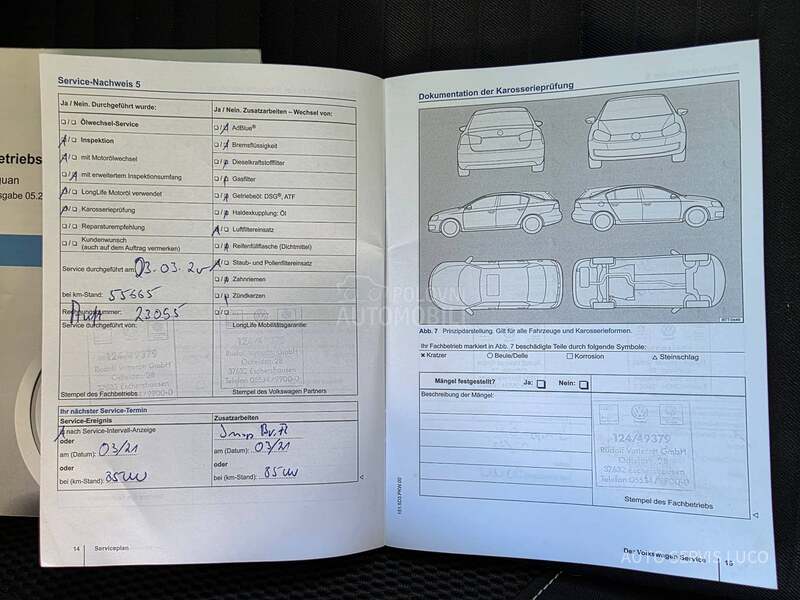 etriebs
guan
sgabe 05.2
Service-Nachweis 5
Ja / Nein. Durchgeführt wurde:
Ölwechsel-Service
Inspektion
mit Motorölwechsel
mit erweitertem Inspektionsumfang
LongLife Motoröl verwendet
Karosserieprüfung
Reparaturempfehlung
Kundenwunsch
(auch auf dem Auftrag vermerken)
Service durchgeführt am: 03.03.20
bei km-Stand: 55665
Rechnungsnummer: 23055
Service durchgeführt von:
124/49379
37632 Eschershausen
Telefon 05534/9900-0
Stempel des Fachbetriebs
Ja / Nein. Zusatzarbeiten – Wechsel von:
AdBlue®
Bremsflüssigkeit
Dieselkraftstofffilter
Gasfilter
Getriebeöl: DSG®, ATF
Haldexkupplung: Öl
Luftfiltereinsatz
Reifenfüllflasche (Dichtmittel)
Staub- und Pollenfiltereinsatz
Zahnriemen
Zündkerzen
LongLife Mobilitätsgarantie:
Stempel des Volkswagen Partners
Ihr nächster Service-Termin
Service-Ereignis
nach Service-Intervall-Anzeige
oder
am (Datum): 03/21
oder
bei (km-Stand):
Zusatzarbeiten
am (Datum): 03/21
oder
bei (km-Stand):
14 Serviceplan
Dokumentation der Karosserieprüfung
Abb. 7 Prinzipdarstellung. Gilt für alle Fahrzeuge und Karosserieformen.
Ihr Fachbetrieb markiert in Abb. 7 beschädigte Teile durch folgende Symbole:
Kratzer Beule/Delle Korrosion Steinschlag
Mängel festgestellt? Ja: Nein:
Beschreibung der Mängel:
124/49379
37632 Eschershausen
Telefon 05534/9900-0
Stempel des Fachbetriebs
Der Volkswagen Service 15
POLOVNI
AUTOMOBILI
AUTO SERVIS LUCO